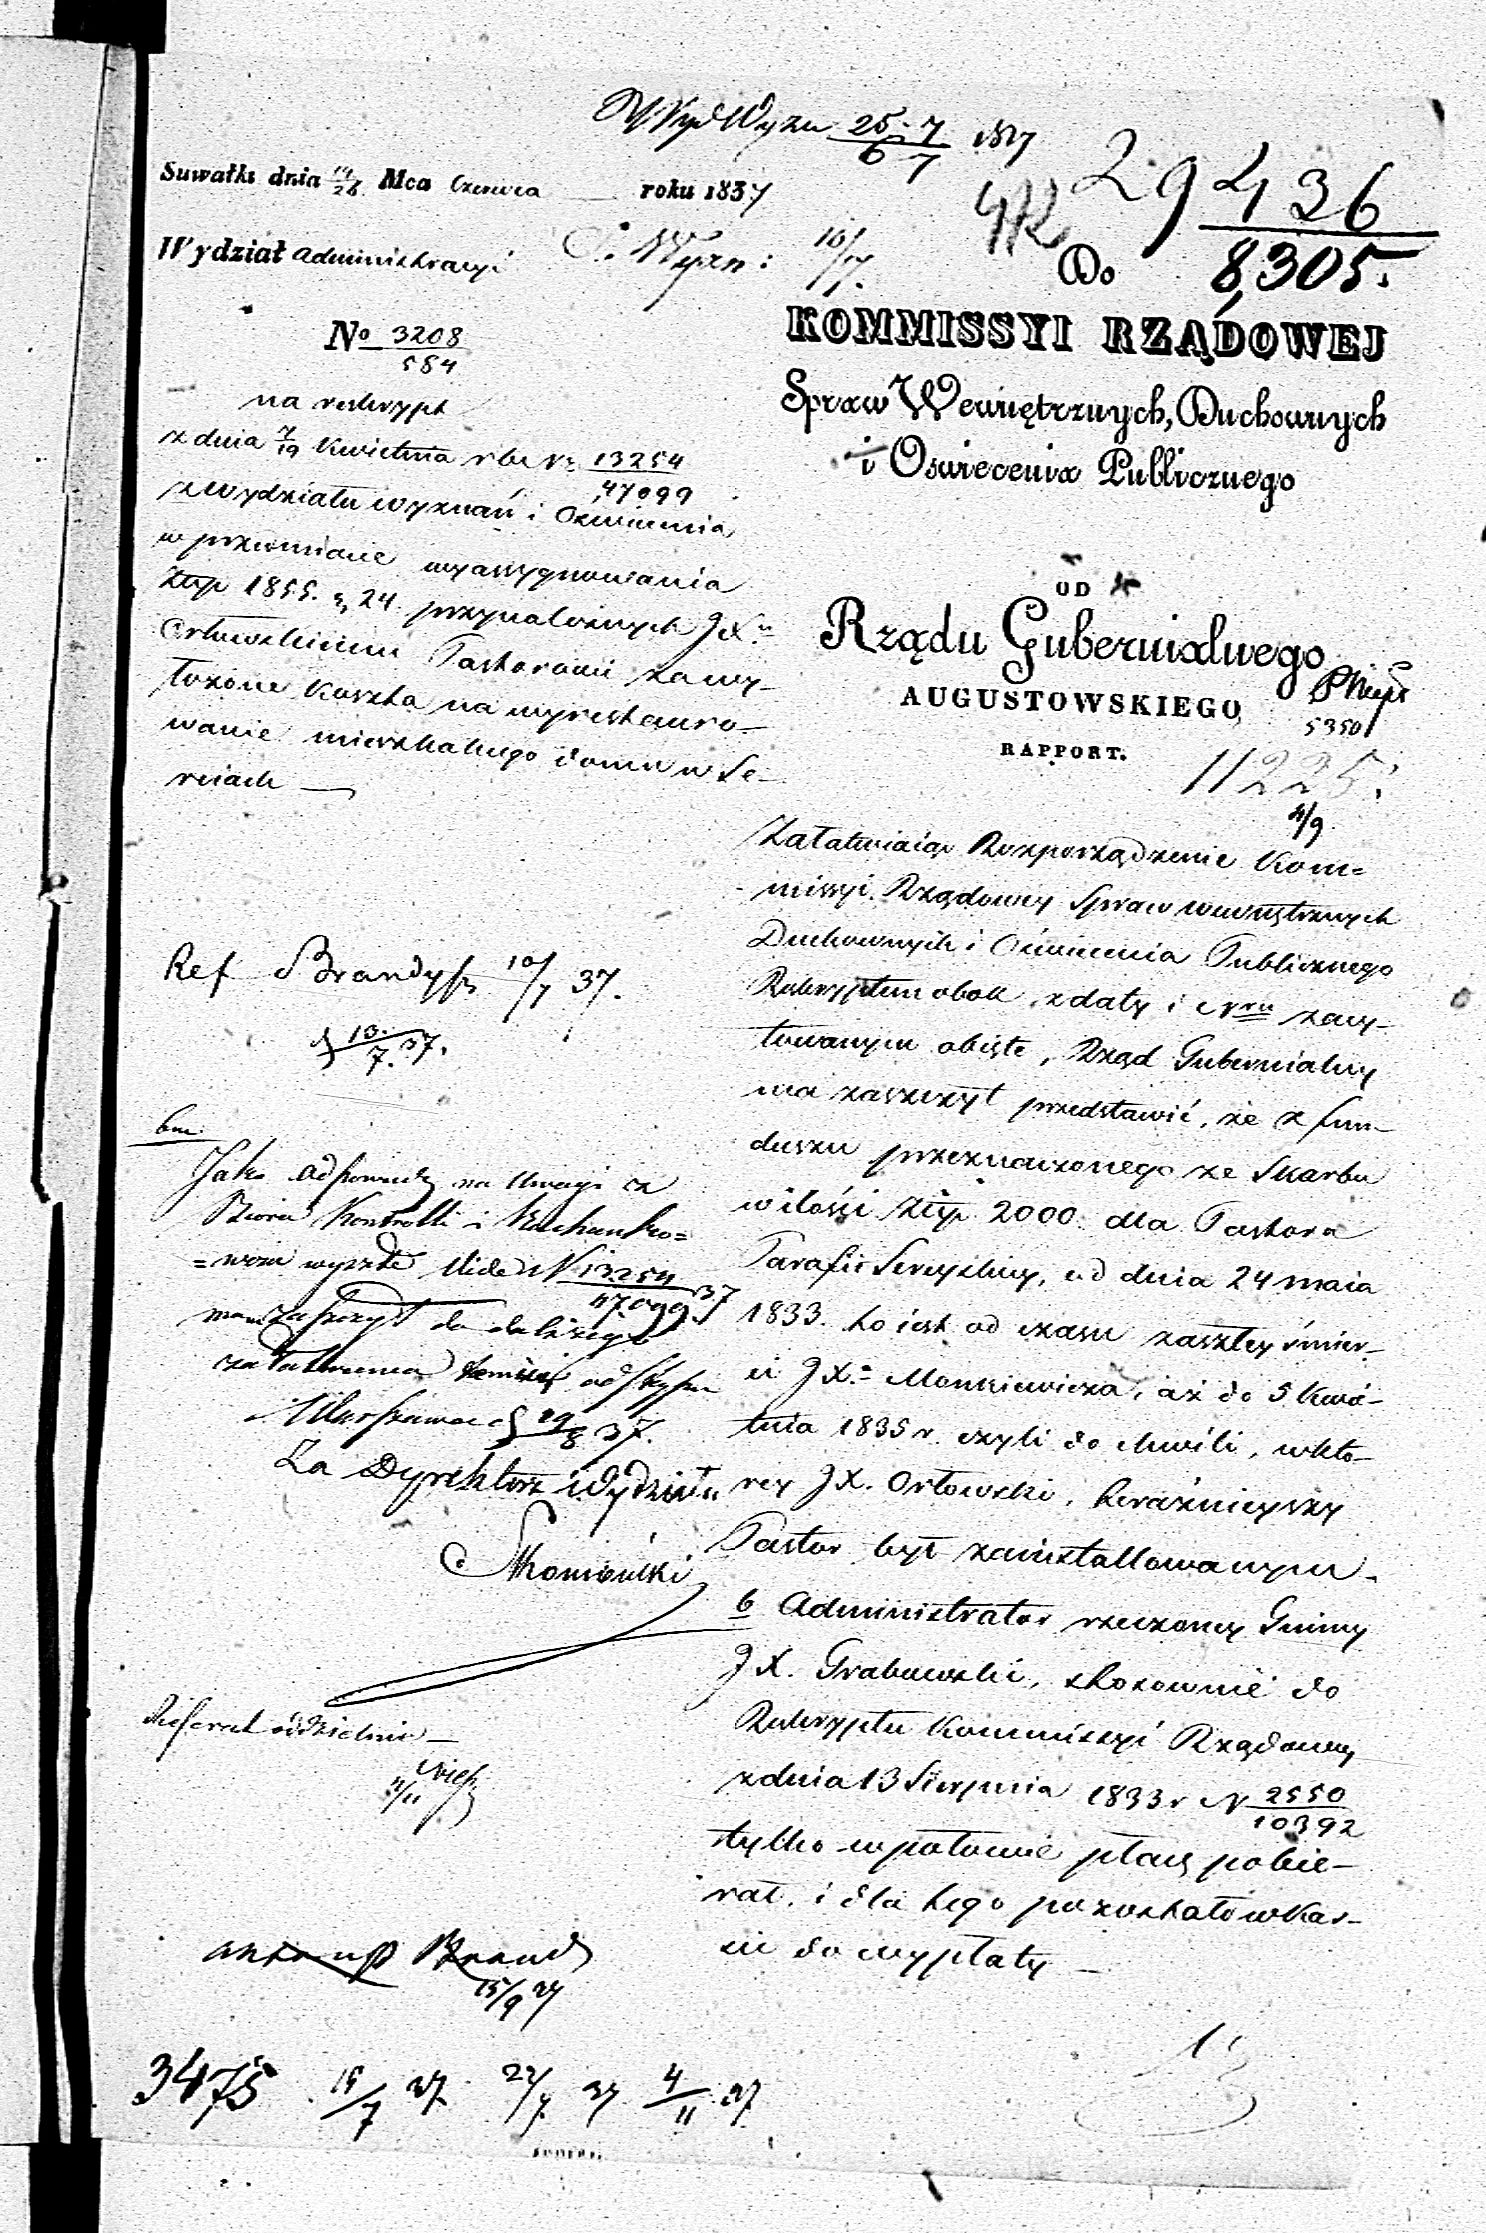 25/6 7/7 1837
29436
8,305.
Suwałki dnia 14/26 Mca Czerwca roku 1837
Wydział Administracyi
S. Wyzn: 10/7.
No 3208/554
na reskrypt
z dnia 7/19 Kwietnia r. b. Nr 13254/47099
z Wydziału wyznań i Oświecenia,
w przedmiocie wyassygnowania
Złtp 1855. g. 24. przynależnych JX.
Orłowskiemu Pastorowi za wy-
łożone koszta na wyrestauro-
wanie mieszkalnego domu w Se-
reiach —
Do
KOMMISSYI RZĄDOWEJ
Spraw Wewnętrznych, Duchownych
i Oswiecenia Publicznego
OD
Rządu Gubernialnego
AUGUSTOWSKIEGO
5350
RAPPORT.
11225.
4/9
Załatwiaiąc Rozporządzenie Kom-
missyi Rządowey Spraw wewnętrznych
Duchownych i Oświecenia Publicznego
Reskryptem obok z daty i Nru zacy-
towanym obięte, Rząd Gubernialny
ma zaszczyt przedstawić, że z fun-
duszu przeznaczonego ze Skarbu
w ilości Złtp. 2000. dla Pastora
Parafii Sereyskiey, od dnia 24 maia
1833. to iest od czasu zaszłey śmier-
ci JX. Monkiewicza, aż do 5 Kwie-
tnia 1835 r. czyli do chwili, w któ-
rey JX. Orłowski, teraźnieyszy
Pastor był zainstallowanym.
b Administrator rzeczoney Gminy
JX. Grabowski, stosownie do
Reskryptu Kommissyi Rządowey
z dnia 13 Sierpnia 1833 r. N 2550/10392
tylko w połowie płacę pobie-
rał, i dla tego pozostało w Kas-
sie do wypłaty —
Ref Brandys 10/7 37.
13./7. 37.
bm.
Jako odpowiedź na Uwagi z
Biora Kontrolli i Rachunko=
=wości wyszłe Vide N 13254/47099 37
mam zaszczyt do dalszego
załatwienia odstąpić
Warszawa d 29/8 37.
Za Dyrektora Wydziału
Referat oddzielnie —
4/11
Brand
15/9 37
3475 15/7 37. 22/7. 37 4/11 37